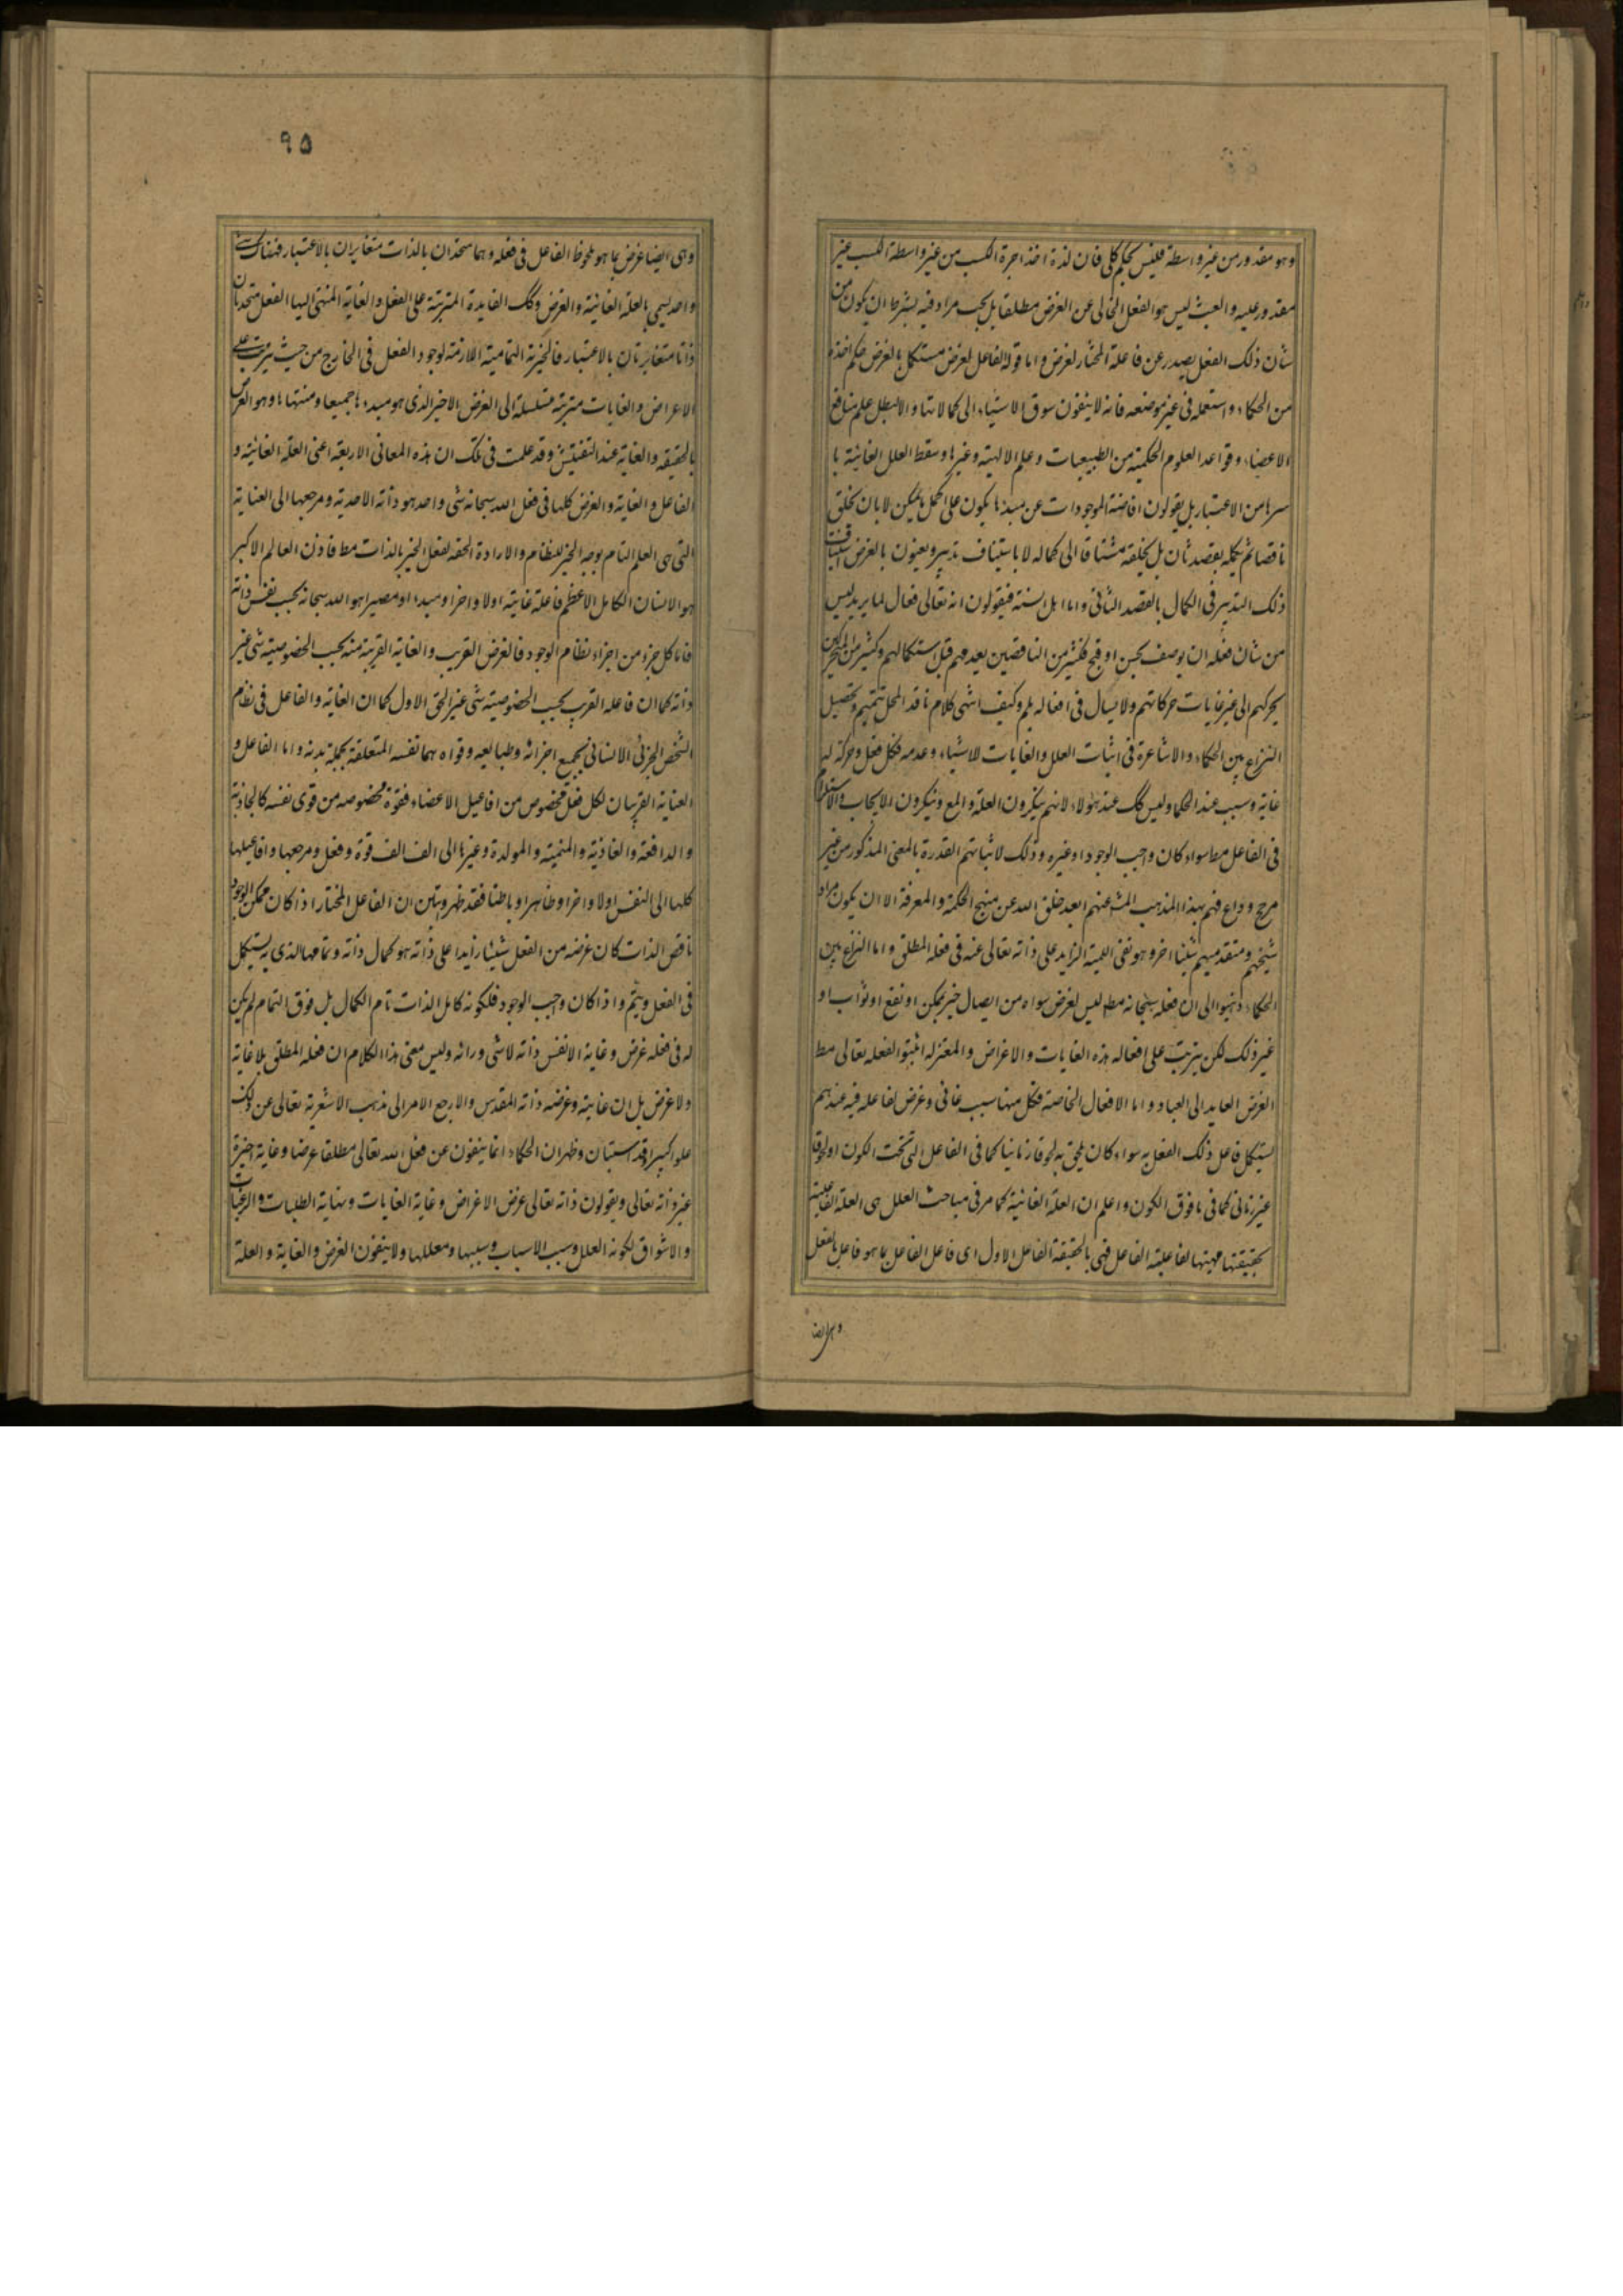 وهو مقدور من غير واسطة فليس بحكم كلى فان لذة اخذ اجرة الكسب من غير واسطة الكسب غير
مقدور عليه والعبث ليس هو الفعل الخالى عن الغرض مطلقا بل يجب مراد فيه بشرط ان يكون من
شأن ذلك الفعل يصدر عن فاعله المختار لغرض واما قوله الفاعل لغرض مستكمل بالغرض حكم اخذه
من الحكماء واستعمله فى غير موضعه فانه لا ينفون سوق الاشياء الى كمالاتها والا لبطل علم منافع
الاعضاء وقواعد العلوم الحكمية من الطبيعيات وعلم الالهية وغيرها وسقط العلل الغائية با
سرها من الاعتبار بل يقولون افاضة الموجودات عن مبدئها يكون على اكمل ما يمكن لا بان يخلق
ناقصا ثم يكمله بقصد ثان بل يخلقه مشتاقا الى كماله لا باستيناف تدبير ويعنون بالغرض استيناف
ذلك التدبير فى الكمال بالقصد الثانى واما اهل السنة فيقولون انه تعالى فعال لما يريد ليس
من شان فعله ان يوصف بحسن او قبح فكثير من الناقصين يعدمهم قبل استكمالهم وكثير من المتحركين
يحركهم الى غير غايات حركاتهم ولا يسال فى افعاله بلم وكيف انتهى كلام ناقد المحصل تتميم وتحصيل
النزاع بين الحكماء والاشاعرة فى اثبات العلل والغايات للاشياء وعدمه فكل فعل وحركة له
غاية وسبب عند الحكما وليس كك عند هؤلاء لانهم ينكرون العلة والمع وينكرون الايجاب والاستلزام
فى الفاعل مط سواء كان واجب الوجود او غيره وذلك لاثباتهم القدرة بالمعنى المذكور من غير
مرجح وداع فهم بهذا المذهب المش عنهم ابعد خلق الله عن منهج الحكمة والمعرفة الا ان يكون مراد
شيخهم ومتقدميهم شيئا اخر وهو نفى اللمية الزايد على ذاته تعالى عنه فى فعله المطلق واما النزاع بين
الحكماء ذهبوا الى ان فعله سبحانه مط ليس لغرض سواه من ايصال خير ممكن او نفع او ثواب او
غير ذلك لكن يترتب على افعاله هذه الغايات والاغراض والمعتزله اثبتوا لفعله تعالى مط
الغرض العايد الى العباد واما الافعال الخاصة فكل منها سبب غائى وغرض لفاعله فيه عندهم
يستكمل فاعل ذلك الفعل به سواء كان يلحق به لحوقا زمانيا كما فى الفاعل التى تحت الكون او لحوقا
غير زمانى كما فى ما فوق الكون واعلم ان العلة الغائية كما مر فى مباحث العلل هى العلة الفاعلية
بحقيقتها ومهيتها لفاعلية الفاعل فهى بالحقيقة الفاعل الاول اى فاعل الفاعل بما هو فاعل بالفعل
وهى ايضا
٩٥
وهى ايضا غرض بما هو ملحوظ الفاعل فى فعله وهما متحدان بالذات متغايران بالاعتبار فهناك شئ
واحد يسمى بالعلة الغائية والغرض وكك الفايدة المترتبة على الفعل والغاية المنتهى اليها الفعل متحدتان
ذاتا متغايرتان بالاعتبار فالخيرية التمامية اللازمة لوجود الفعل فى الخارج من حيث يترتب على
الاعراض والغايات مترتبة متسلسلة الى الغرض الاخير الذى هو مبدءها جميعا ومنتهاها وهو الغرض
بالحقيقه والغاية عند التفتيش وقد علمت فى تلك ان هذه المعانى الاربعة اعنى العلة الغائية و
الفاعل والغاية والغرض كلها فى فعل الله سبحانه شى واحد هو ذاته الاحدية ومرجعها الى العناية
التى هى العلم التام بوجه الخير للنظام والارادة الحقه لفعل الخير بالذات مط فاذن العالم الاكبر
هو الانسان الكامل الاعظم فاعله غايته اولا واخرا ومبدء او مصيرا هو الله سبحانه بحسب نفس ذاته
فاما كل جزء من اجزاء نظام الوجود فالغرض القريب والغاية القريبة منه بحسب الخصوصية شى غير
ذاته كما ان فاعله القريب بحسب الخصوصية شى غير الحق الاول كما ان الغاية والفاعل فى نظام
الشخص الجزئى الانسانى بجميع اجزائه وطبايعه وقواه هما نفسه المتعلقة بجملة بدنه واما الفاعل و
الغاية القريبان لكل فعل مخصوص من افاعيل الاعضاء فقوة مخصوصه من قوى نفسه كالجاذبة
والدافعة والغاذية والمنمية والمولدة وغيرها الى الف الف قوة وفعل ومرجعها وافاعيلها
كلها الى النفس اولا واخرا وظاهرا وباطنا فقد ظهر وتبين ان الفاعل المختار اذا كان ممكن الوجود
ناقص الذات كان غرضه من الفعل شيئا زايدا على ذاته هو كمال ذاته وتمامها الذى به يستكمل
فى الفعل ويتم واذا كان واجب الوجود فلكونه كامل الذات تام الكمال بل فوق التمام لم يكن
له فى فعله غرض وغاية الا نفس ذاته لا شى ورائه وليس معنى هذا الكلام ان فعله المطلق بلا غاية
ولا غرض بل ان غايته وغرضه ذاته المقدس والا رجع الامر الى مذهب الاشعرية تعالى عن ذلك
علوا كبيرا وقد استبان وظهر ان الحكماء انما ينفون عن فعل الله تعالى مطلقا غرضا وغاية اخيرة
غير ذاته تعالى ويقولون ذاته تعالى غرض الاغراض وغاية الغايات ونهاية الطلبات والرغبات
والاشواق لكونه العلل وسبب الاسباب ومسببها ومعللها ولا ينفون الغرض والغاية والعلة